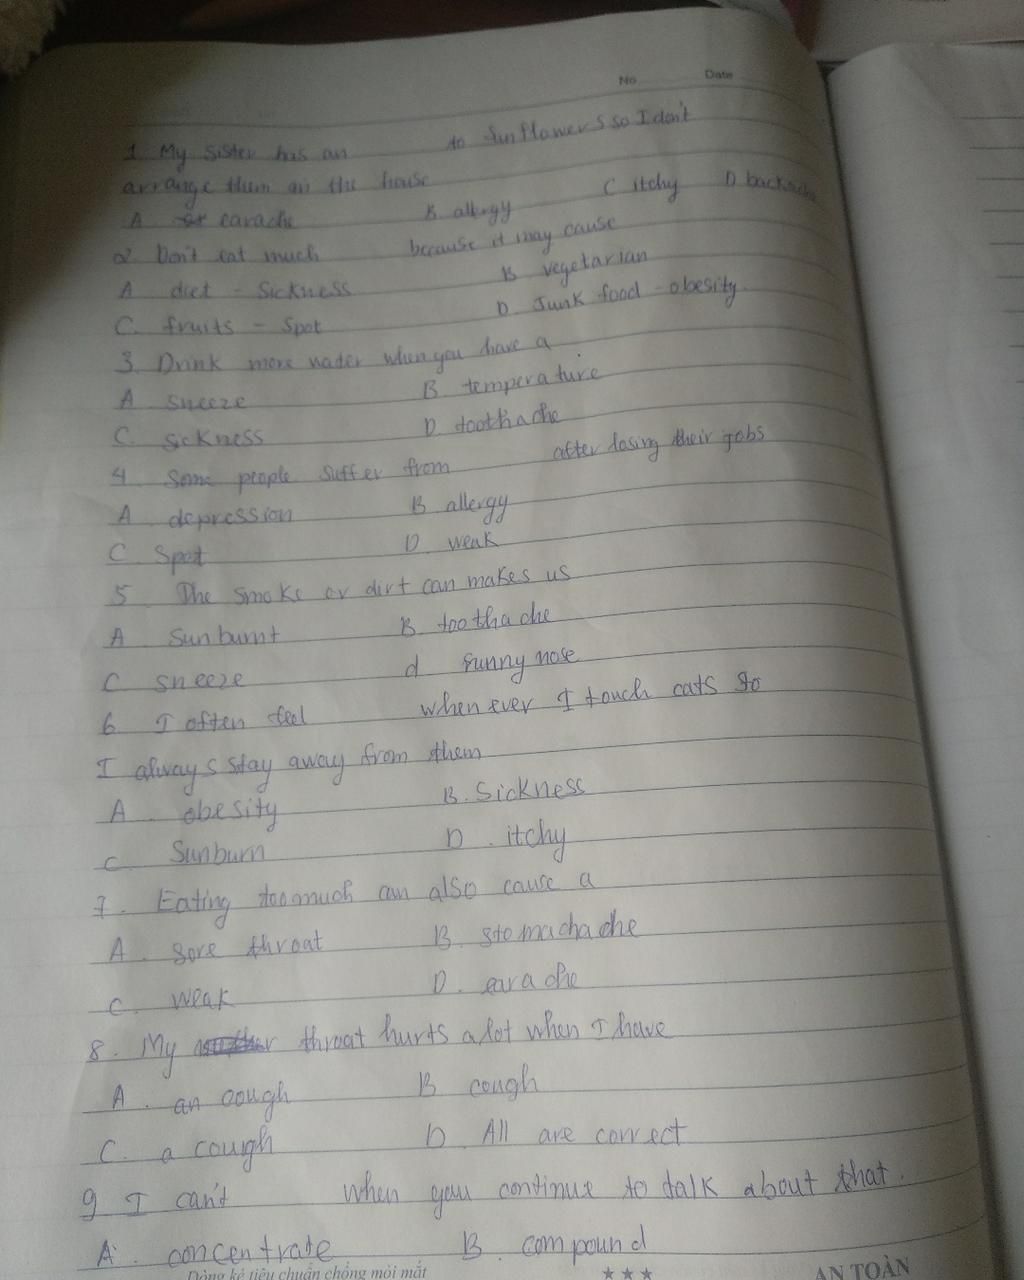 No Date
1 My sister has an to Sunflowers so I don't
arrange them in the house
A earache B. allergy C itchy D backache
2 Don't eat much because it may cause
A diet - Sickness B vegetarian
C. fruits - Spot D. Junk food - obesity.
3. Drink more wader when you have a
A sneeze B temperature
C. sickness D toothache
4. Some people suffer from after losing their jobs
A. depression B allergy
C Spot D. weak
5 The smoke or dirt can makes us
A sunburnt B. toothache
C sneeze d funny nose
6 I often feel whenever I touch cats so
I always stay away from them
A. obesity B. Sickness
C Sunburn D. itchy
7. Eating too much can also cause a
A. sore throat B. stomachache
C. weak D. earache
8. My throat hurts a lot when I have
A. an cough B cough
C. a cough D All are correct
9 I can't when you continue to talk about that.
A. concentrate B. compound
Dòng kẻ tiêu chuẩn chống mỏi mắt ★★★ AN TOÀN